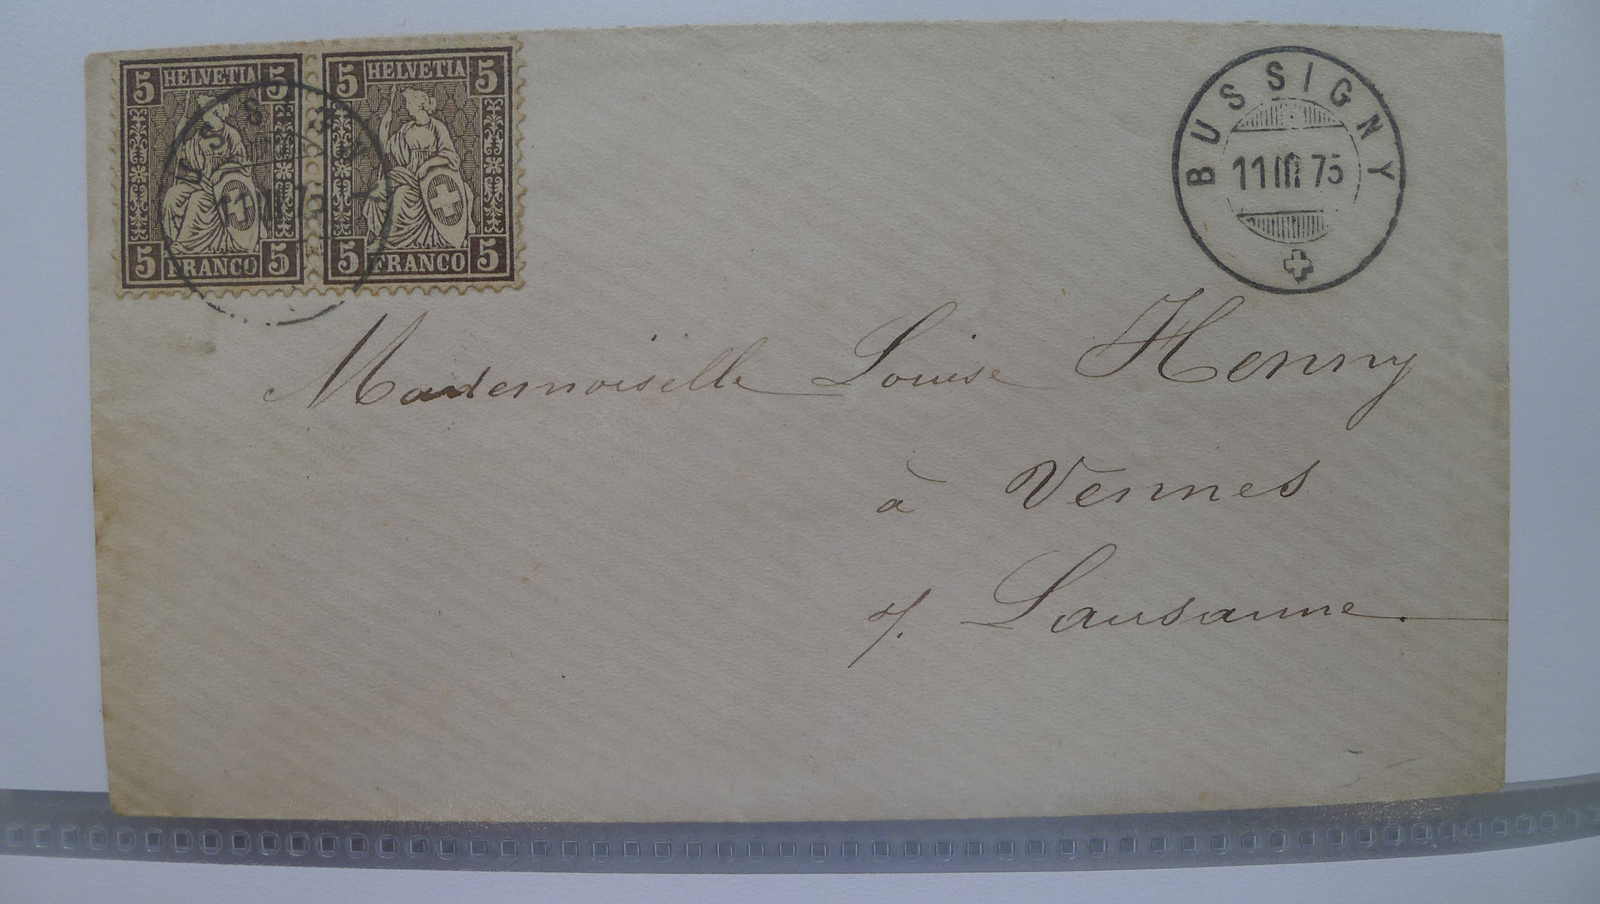 5 HELVETIA 5
5 FRANCO 5
5 HELVETIA 5
5 FRANCO 5
BUSSIGNY
11 III 75
Mademoiselle Louise Henny
à Vennes
s/. Lausanne.